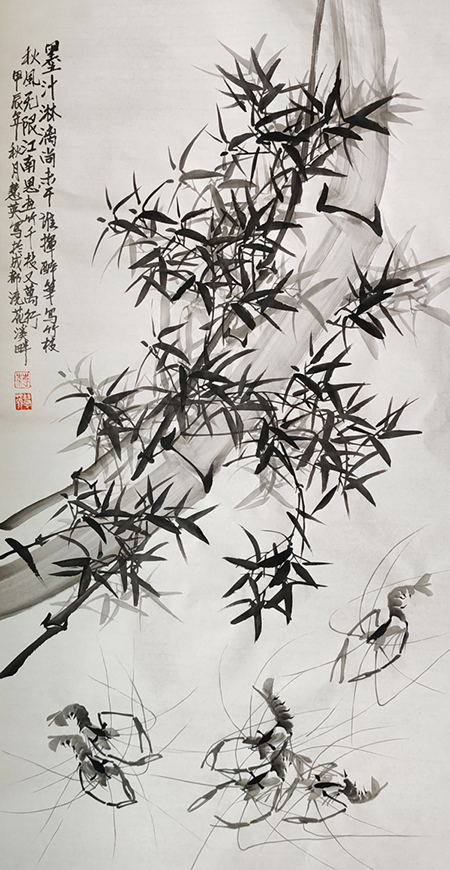 墨汁淋漓尚未干谁挥醉笔写竹枝
秋风无限江南思画竹千枝又万行
甲辰年秋月慧英写於成都浣花溪畔